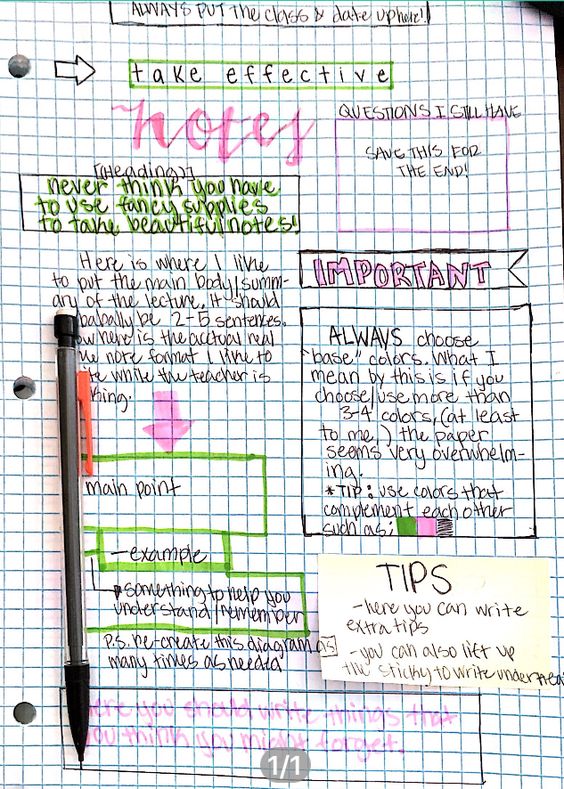 ALWAYS PUT the class & date up here!
take effective
notes
QUESTIONS I STILL HAVE
SAVE THIS FOR
THE END!
[(Heading)]
never think you have
to use fancy supplies
to take beautiful notes!
Here is where I like
to put the main body/summ-
ary of the lecture. It should
babally be 2-5 sentences.
ow here is the acctual real
note format I like to
while the teacher is
king.
IMPORTANT
ALWAYS choose
"base" colors. What I
mean by this is if you
choose/use more than
3-4 colors, (at least
to me,) the paper
seems very overwhelm-
ing.
*TIP: use colors that
complement each other
such as:
main point
-example
something to help you
understand/remember
P.S. re-create this diagram as
many times as needed
TIPS
-here you can write
extra tips
-you can also lift up
the sticky to write undernea
ere you should write things that
you think you might forget.
1/1